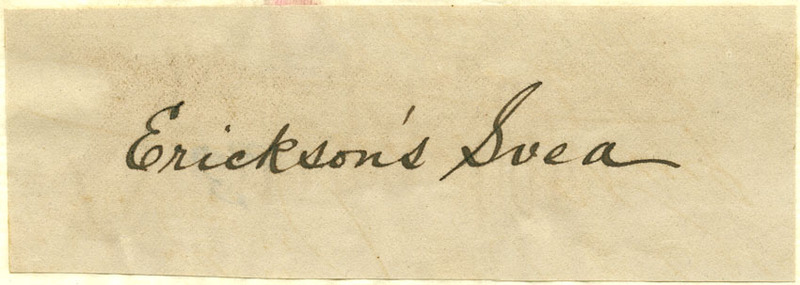 Erickson's Svea